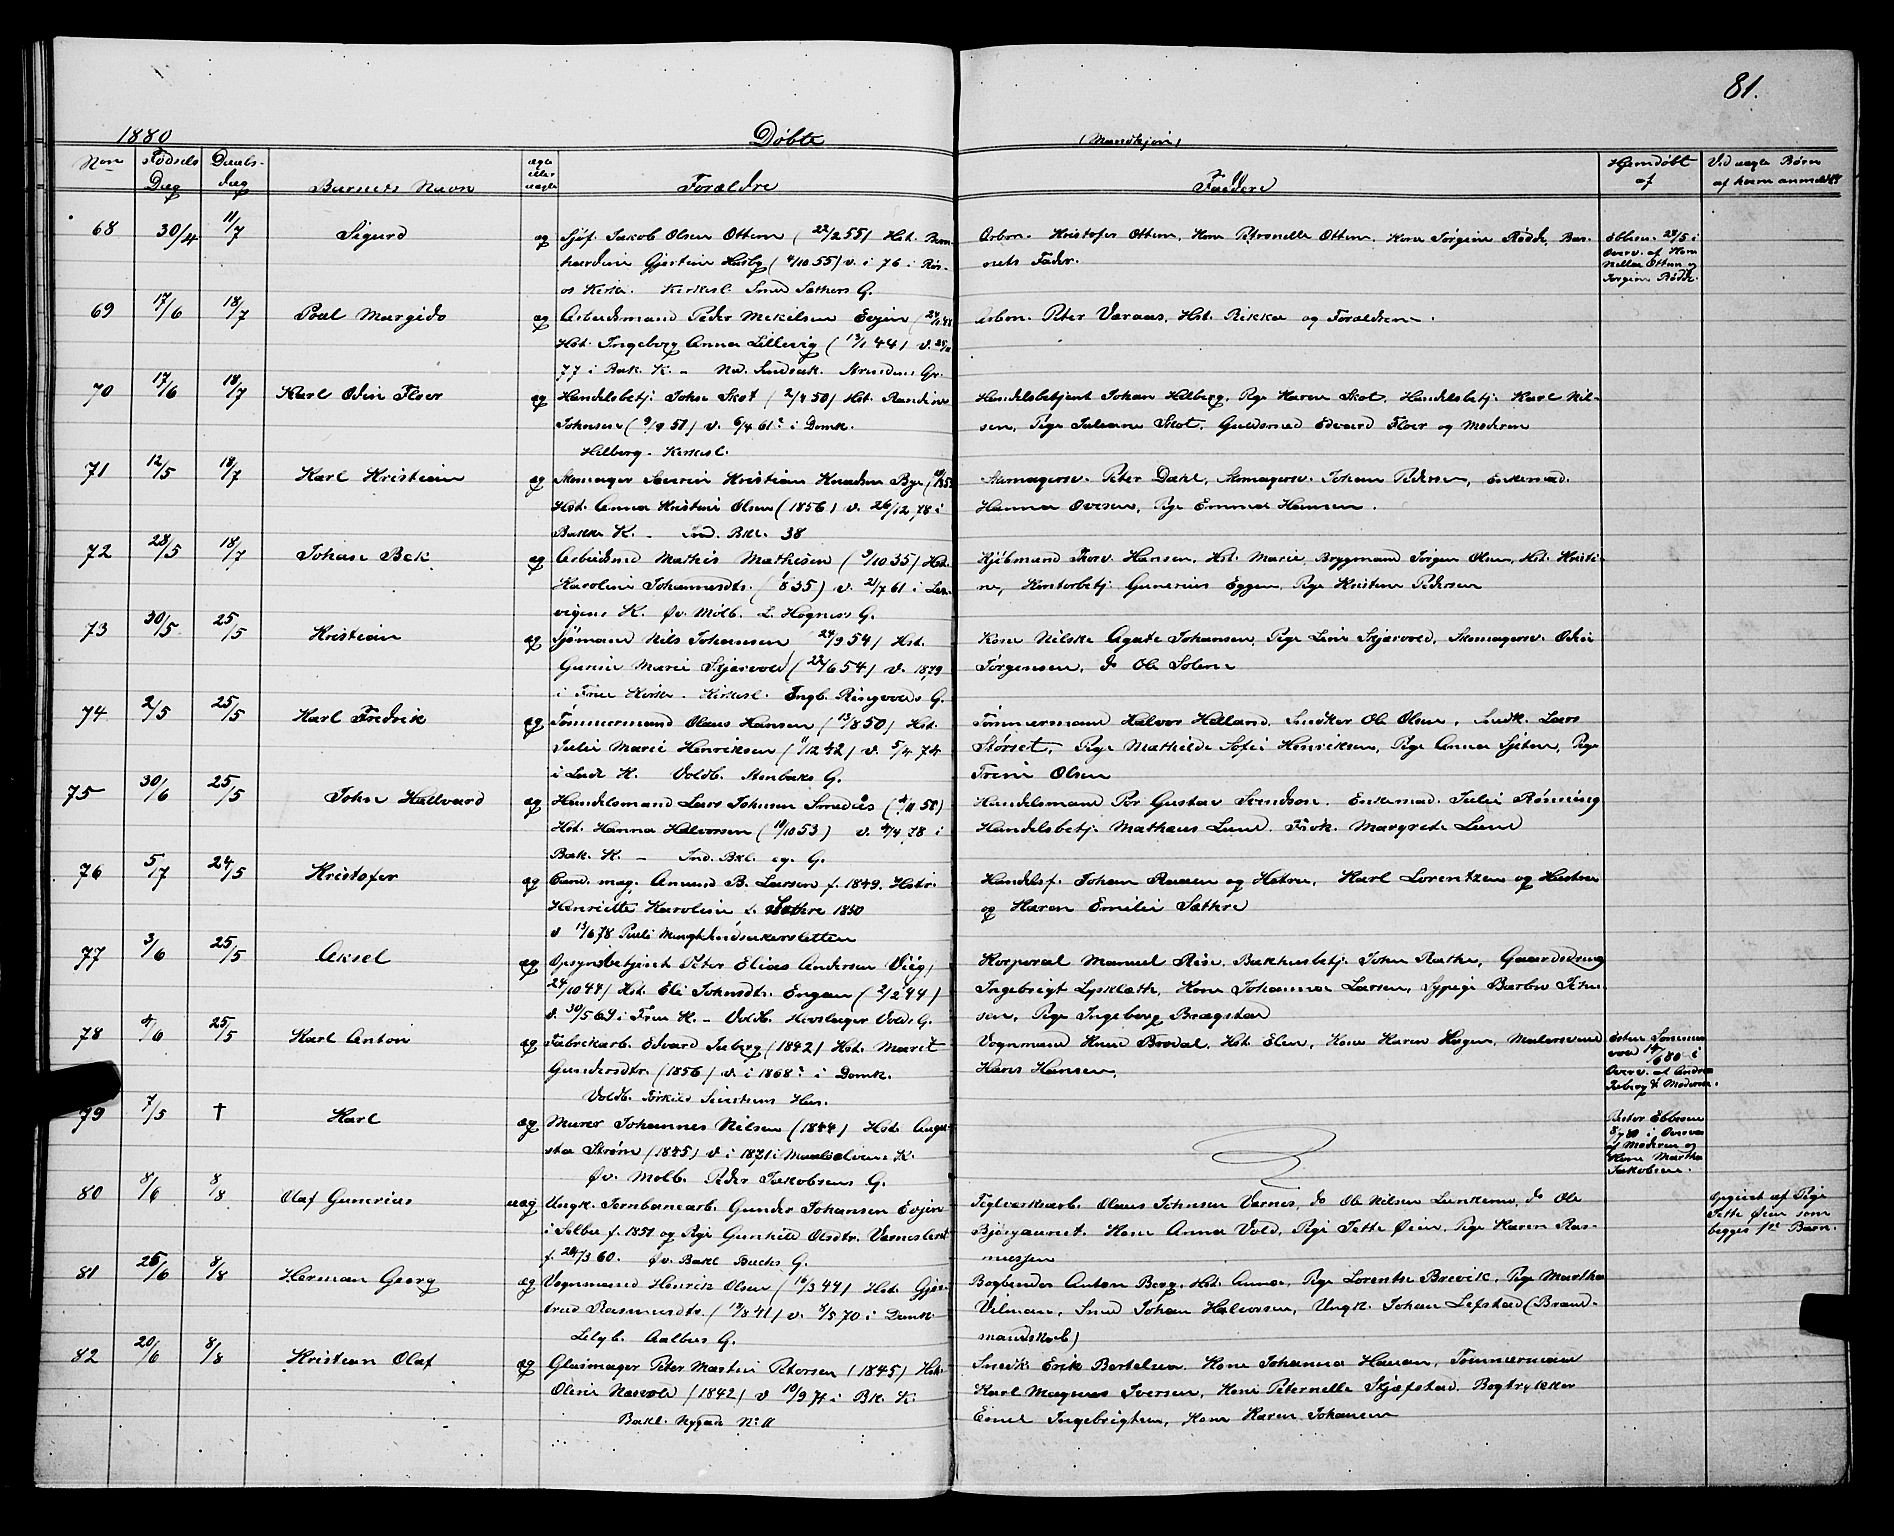 81.
1880 Døbte (Mandkjøn)
Nmr Fødsels Dag Daabs-dag Barnets Navn ægte eller uægte Forældre Faddere Hjemdøbt af Ved uægte Børn af hvem anmeldt
68 30/4 11/7 Sigurd æg Sjøf. Jakob Olsen Ottem (22/2 55) Hst. Bern-
hardine Gjertine Husby (4/10 55) v. i 76 i Røs-
os Kirke. Kirkesl. Smed Sæthers G.
Arbm. Kristofer Ottem, Kone Petronelle Ottem, Kone Jørgine Rødde, Bar-
nets Fader.
Ebbesen 28/5 i
Overv. af Kone
Nellae Ottem og
Jørgine Rødde
69 17/6 18/7 Poul Margido æg Arbeidsmand Peder Mikelsen Evjen
Hst. Ingeborg Anna Lillevig (13/1 44) v.
77 i Bak. K. - Nd. Indsæk. Strandens Gr.
Arbm. Peter Væraas, Hst. Rikka og Forældrene.
70 17/6 18/7 Karl Odin Floer æg Handelsbetj. Johan Skot (2/4 50) Hst. Randine
Johnsen (9/9 51) v. 6/4 61? i Domk.
Hilberg - Kirkesl.
Handelsbetjent Johan Hilberg, Pge Karen Skot, Handelsbetj. Karl Nil-
sen, Pige Juliane Skot, Guldsmed Edvard Floer og Moderen
71 12/5 18/7 Karl Kristian æg Skomager Severin Kristian Knudsen Bye
Hst. Anna Kristine Olsen (1856) v. 26/12 78 i
Bakke K. - Ind. Bkl. 38
Skomagersv. Peter Dahl, Skomagersv. Johan Pedersen, Enkemad.
Hanna Ovesen, Pge Emma Hansen.
72 28/5 18/7 Johan Bek æg Arbeidsmd Mathis Mathisen (9/10 35) Hst.
Karoline Johannesdtr. (1835) v. 21/7 61 i Lex-
vigens K. Øv. Molb. L. Hogness G.
Kjøbmand Thorv. Hansen, Hst. Marie, Brygmand Jørgen Olsen, Hst. Kristi-
ne, Kontorbetj. Gunerius Eggen, Pge Kristine Pedersen
73 30/5 25/5 Kristian æg Sjømand Nils Johansen (24/9 54) Hst.
Gurine Marie Skjærvold (22/6 54) v. 1879
i Frue Kirke - Kirkesl. Engb. Ringvolds G.
Kone Nilske Agate Johansen, Pge Line Skjærvold, Skomagersv. Odin
Jørgensen, do Ole Solem
74 2/5 25/5 Karl Fredrik æg Tømmermand Olaus Hansen (13/8 50) Hst.
Julie Marie Henriksen (11/12 42) v. 5/4 74
i Lade K. Voldb. Stenbaks G.
Tømmermand Halvor Helland, Snedker Ole Olsen, Snedk. Lars
Størset, Pge Mathilde Sofie Henriksen, Pge Anna Sjeten, Pge
Trine Olsen
75 30/6 25/5 John Hallvard æg Handelsmand Lars Johnsen Smedås (4/10 50)
Hst. Hanna Halvorsen (18/10 53) v. 4/4 78 i
Bak. K. - Ind. Bkl. eg. G.
Handelsmand Per Gustav Svendson, Enkemad. Julie Rønning
Handelsbetj. Mathæus Lund, Frøk. Margrete Lund
76 5/7 24/5 Kristofer æg Cand. mag. Amund B. Larsen f. 1849. Hstr.
Henriette Karoline f. Sæthre 1850
v 13/6 78
Handelsf. Johan Raaen og Hstru, Karl Lorentzen og Hustru
og Karen Emilie Sæthre
77 3/6 25/5 Aksel æg Opsynsbetjent Peter Elias Andersen Vieg
24/10 44) Hst. Eli Johnsdtr. Engan (2/2 44)
v. 30/5 69 i Frue K. - Voldb. Hovslager Volds G.
Korporal Manuel Rise, Bakhusbetj. John Rathe, Gaardsdreng
Ingebrigt Lysklætt, Kone Johanna Larsen, Sypige Barbro Jen-
sen, Pge Ingeborg Brægstad
78 4/6 25/5 Karl Anton æg Fabrikarb. Edvard Inberg (1842) Hst. Marit
Gundersdtr. (1856) v. i 1868? i Domk.
Voldb. Torkild Sivertsens Hus.
Vognmand Knud Brodal, Hst. Elen, Kone Karen Hagen, Malersvend
Hans Hansen.
79 7/5 † Karl æg Murer Johannes Nilsen (1844) Hst. Augu-
sta Strøm (1845) v. i 1871 i Maalselvens K.
Øv. Molb. Peder Jakobsens G.
Pastor Ebbesen
8/7 80 i Overv.
af Moderen og
Kone Martha
Jakobsen.
80 8/6 8/8 Olaf Gunerius uæg Ungk. Jernbanearb. Gunder Johansen Evjen
i Selbu f. 1851 og Pige Gunhild Olsdtr. Værneslien
f. 24/3 60. Øv. Bakl Bachs G.
Teglverksarb. Olaus Johnsen Værnes, do Ole Nilsen Lunkemo, do Ole
Bjørgaunet. Kone Anna Vold, Pge Jette Øien, Pge Karen Ras-
mussen
Opgivet af Pige
Jette Øien som
begges 1ste Barn.
81 26/6 8/8 Herman Georg æg Vognmand Henrik Olsen (16/3 44) Hst. Gjer-
trud Rasmusdtr. (19/8 41) v. 8/5 70 i Domk
Lilgb. Aalbus G.
Bogbinder Anton Berg, Hst. Anna, Pge Lorentse Brevik, Pge Martha
Vilman, Smed Johan Halvorsen, Ungk. Johan Lefstad (Brand-
mandskob)
82 20/6 8/8 Kristian Olaf æg Glasmager Peter Martin Petersen (1845) Hst.
Oline Næsvold (1842) v 10/9 71 i Bk. K.
Bakl. Nygad N. 11
Snedk Erik Bertelsen, Kone Johanna Hanan, Tømmermand
Karl Magnus Iversen, Kone Peternelle Skjefstad, Bogtrykker
Emil Ingebrigtsen, Kone Karen Johansen